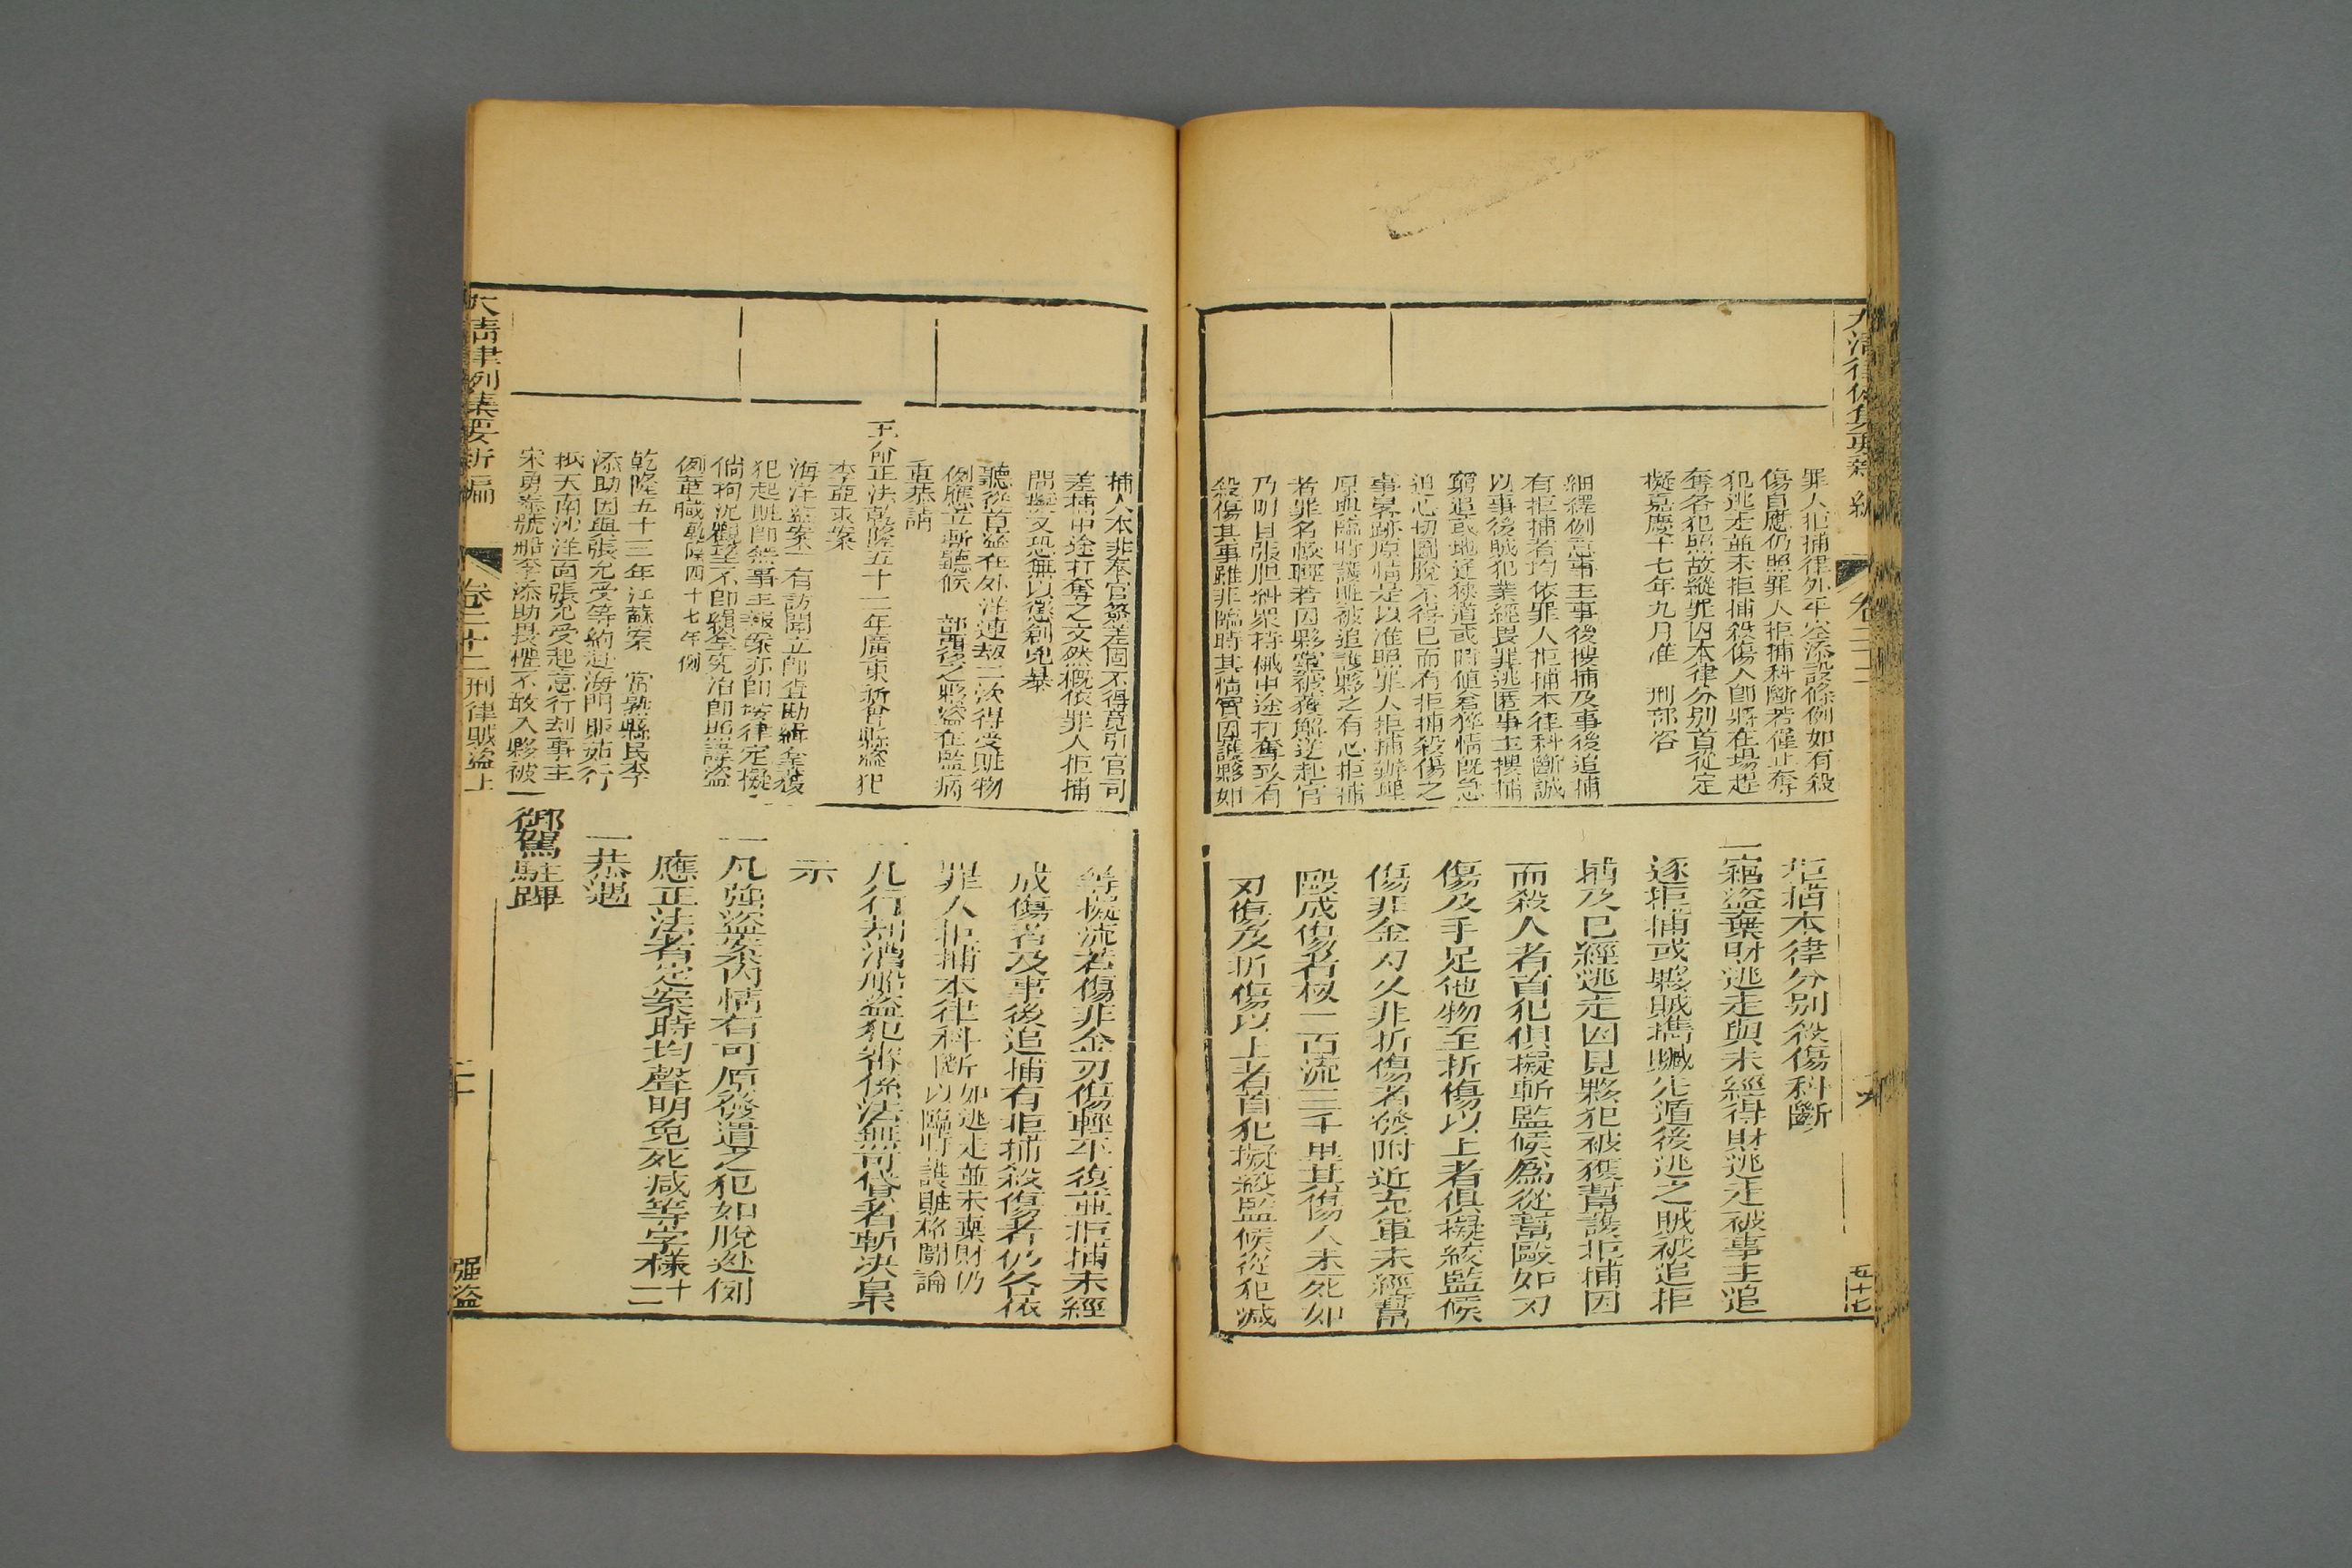 罪人拒捕律外平空添設條例如有殺
傷自應仍照罪人拒捕科斷若僅止奪
犯逃走並未拒捕殺傷人即將在場趕
奪各犯照故縱罪囚本律分別首從定
擬嘉慶十七年九月准 刑部咨
細繹例意事主事後搜捕及事後追捕
有拒捕者均依罪人拒捕本律科斷誠
以事後賊犯業經畏罪逃匿事主搜捕
窮追或地逢狹道或時值倉猝情既急
追心切圖脫不得已而有拒捕殺傷之
事畧跡原情是以准照罪人拒捕辦理
原與臨時護賍被追護夥之有心拒捕
者罪名較輕若因夥黨被獲解送赴官
乃明目張胆糾眾持械中途打奪致有
殺傷其事雖非臨時其情實因護夥如
拒捕本律分别殺傷科斷
一竊盜棄財逃走與未經得財逃走被事主追
逐拒捕或夥賊攜贓先遁後逃之賊被追拒
捕及已經逃走因見夥犯被獲幫護拒捕因
而殺人者首犯俱擬斬監候為從幫毆如刃
傷及手足他物至折傷以上者俱擬絞監候
傷非金刃又非折傷者發附近充軍未經幫
毆成傷者杖一百流三千里其傷人未死如
刃傷及折傷以上者首犯擬絞監候從犯減
五十七
捕人本非奉官簽差固不得竟引官司
差捕中途打奪之文然概依罪人拒捕
問擬又恐無以懲創兇暴
聽從首盜在外洋連刼二次得受賍物
例應立斬聽候 部覆後之夥盜在監病
重恭請
王命正法乾隆五十二年廣東新會縣盜犯
李亞求案
海洋盜案一有訪聞立即查勘緝拿獲
犯起賍即無事主報案亦即按律定擬
倘拘泥觀望不即緝拿究治即照諱盜
例革職乾隆四十七年例
乾隆五十三年江蘇案 常熟縣民李
添助因與張允受等納赴海門販姑行
抵大南沙洋面張允受起意行刼事主
宋勇泰號船李添助畏懼不敢入夥被
等擬流若傷非金刃傷輕平復並拒捕未經
成傷者及事後追捕有拒捕殺傷者仍各依
罪人拒捕本律科斷如逃走並未棄財仍以臨時護賍格鬭論
一凡行刼漕船盜犯審係法無可貸者斬決梟
示
一凡強盜案內情有可原發遣之犯如脫逃例
應正法者定案時均聲明免死減等字樣
一恭遇
御駕駐蹕
大清律例集要新編 卷二十二 刑律賊盜上
強盜